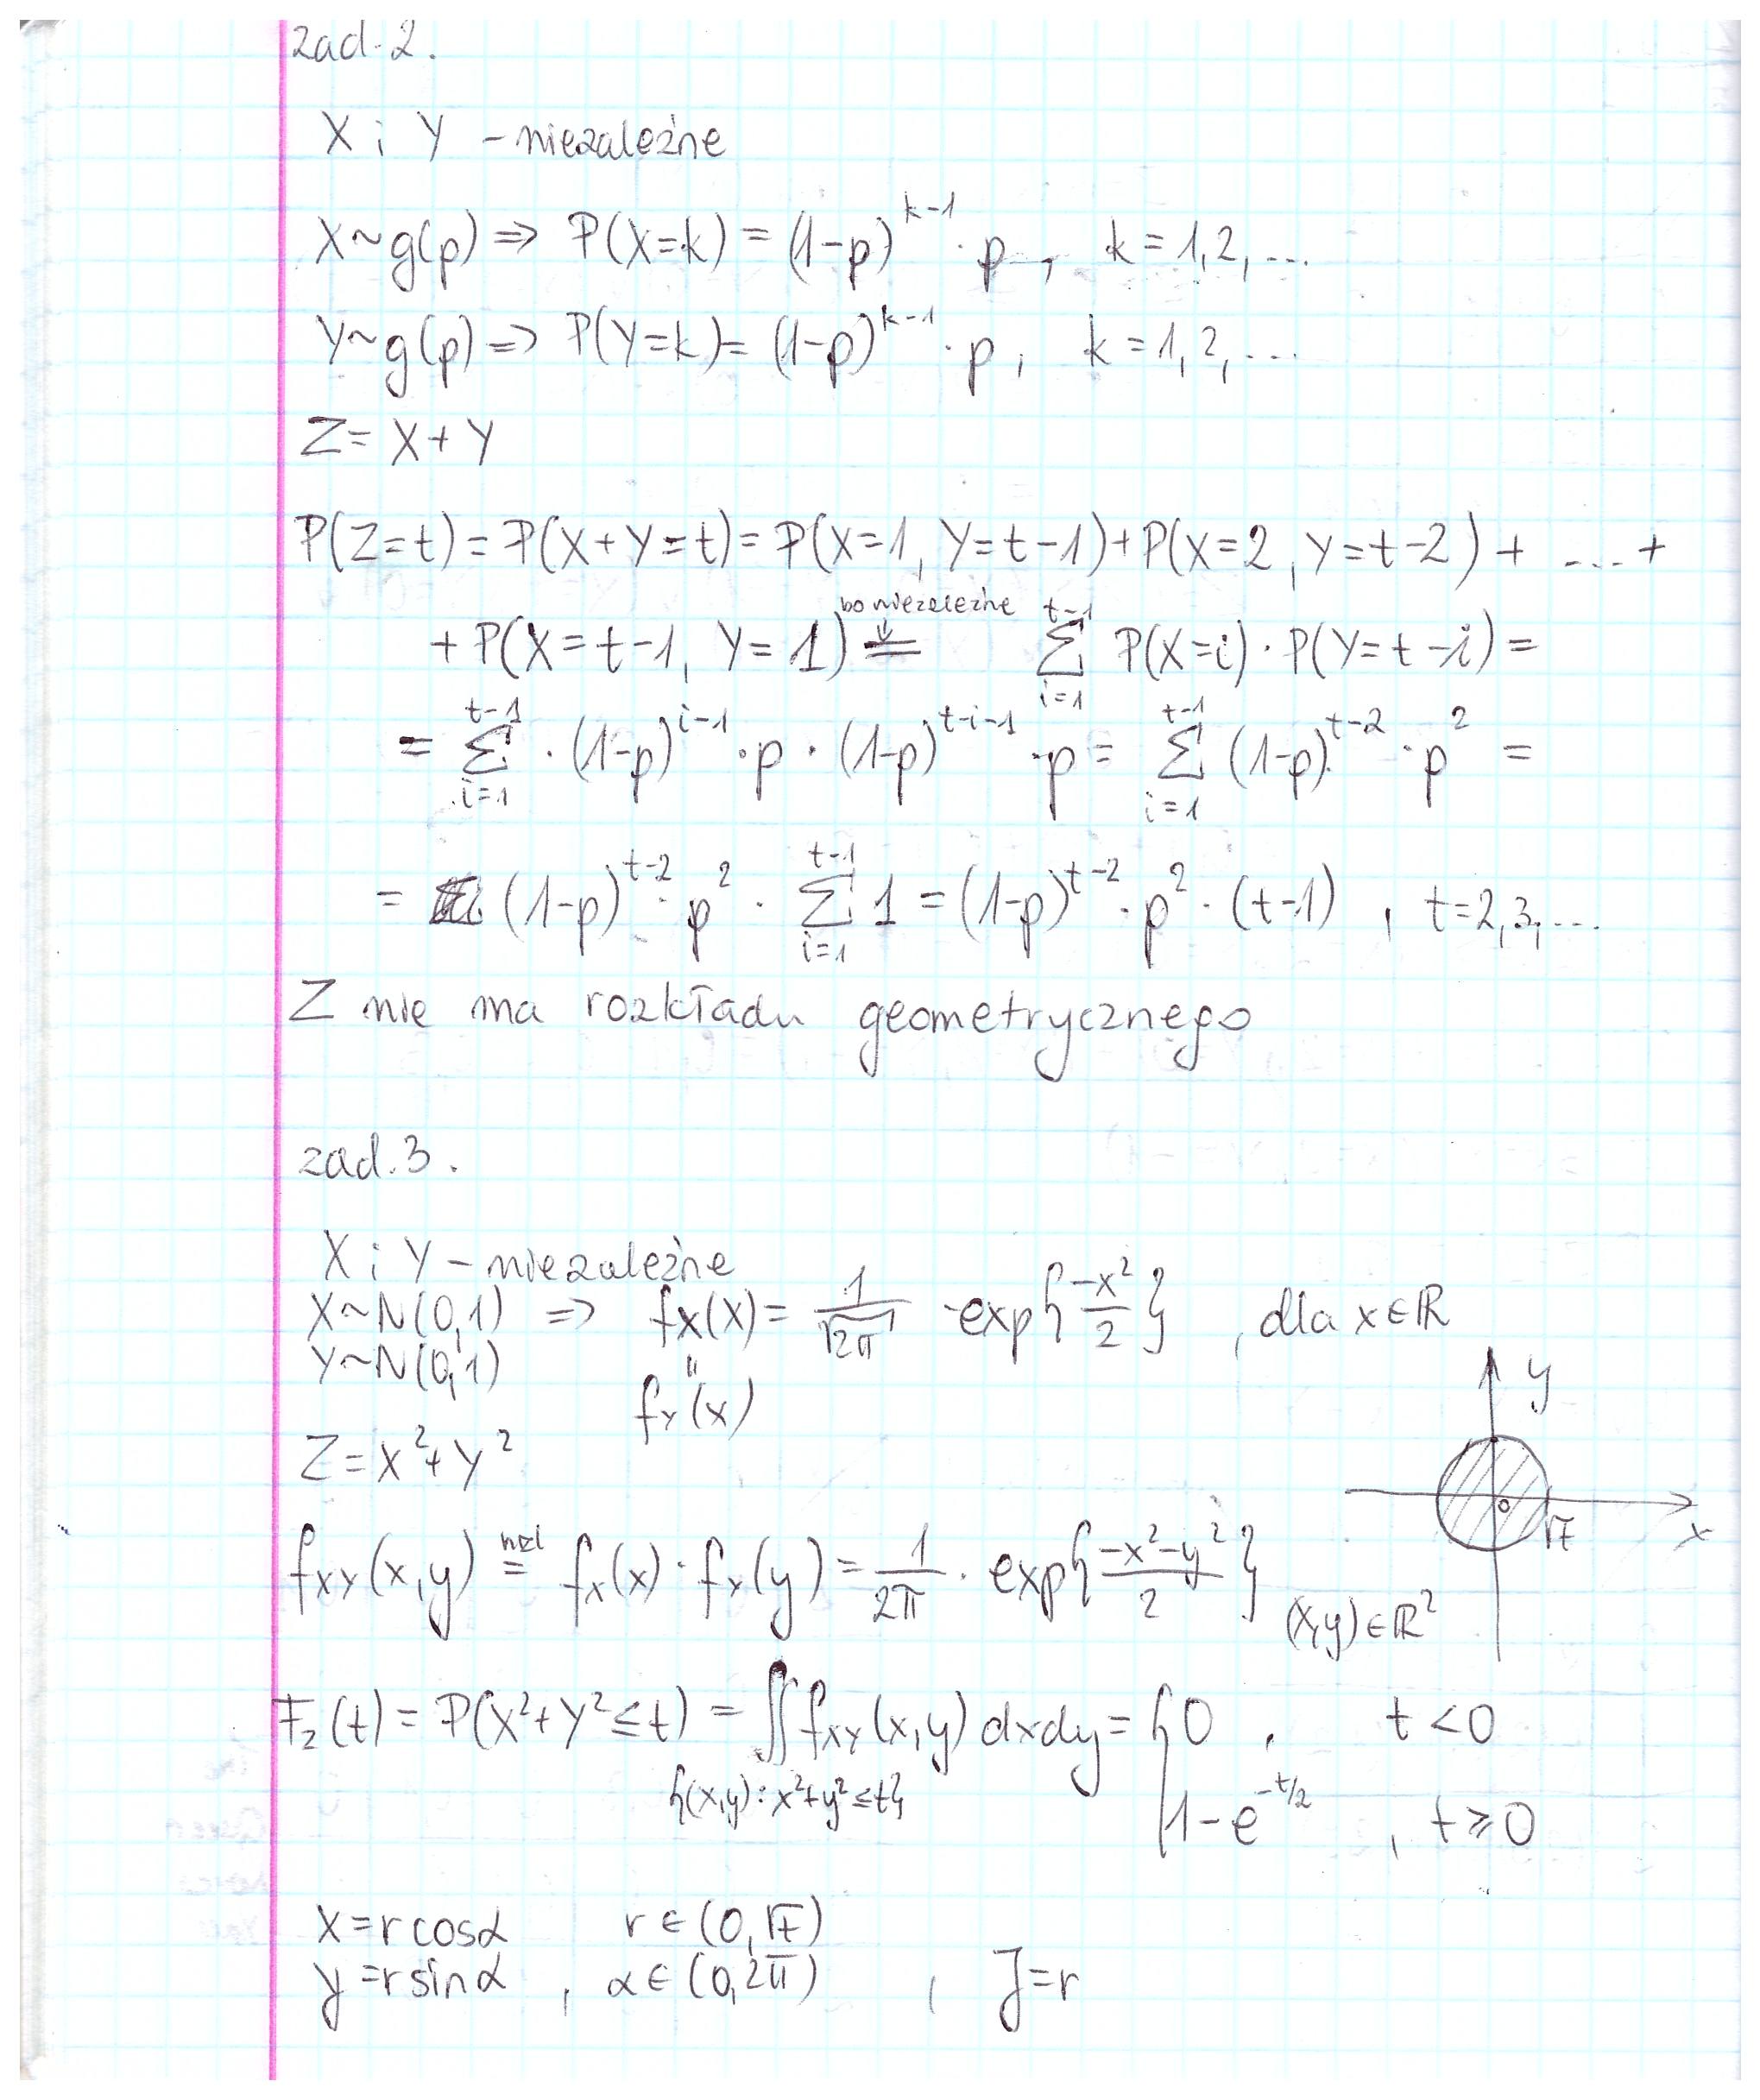 zad. 2.
X i Y – niezależne
X~g(p) ⇒ P(X=k) = (1-p)^{k-1} · p, k = 1,2,...
Y~g(p) ⇒ P(Y=k) = (1-p)^{k-1} · p, k = 1,2,...
Z = X+Y
P(Z=t) = P(X+Y=t) = P(X=1, Y=t-1) + P(X=2, Y=t-2) + ... +
bo niezależne
+ P(X=t-1, Y=1) = \sum_{i=1}^{t-1} P(X=i) · P(Y=t-i) =
= \sum_{i=1}^{t-1} · (1-p)^{i-1} · p · (1-p)^{t-i-1} · p = \sum_{i=1}^{t-1} (1-p)^{t-2} · p^2 =
= (1-p)^{t-2} · p^2 · \sum_{i=1}^{t-1} 1 = (1-p)^{t-2} · p^2 · (t-1) , t=2,3,...
Z nie ma rozkładu geometrycznego
zad. 3.
X i Y – niezależne
X~N(0,1) ⇒ f_X(x) = \frac{1}{\sqrt{2π}} · exp{\frac{-x^2}{2}} , dla x∈ℝ
Y~N(0,1)
"
f_Y(x)
y
Z = X^2+Y^2
0
√t
x
f_{XY}(x,y) \overset{nzl}{=} f_X(x) · f_Y(y) = \frac{1}{2π} · exp{\frac{-x^2-y^2}{2}}
(x,y)∈ℝ^2
F_Z(t) = P(X^2+Y^2≤t) = ∬ f_{XY}(x,y) dxdy = { 0 , t<0
{(x,y): x^2+y^2≤t}
1-e^{-t/2} , t≥0
x = r cosα r∈(0,√t)
y = r sinα , α∈(0,2π) , J=r